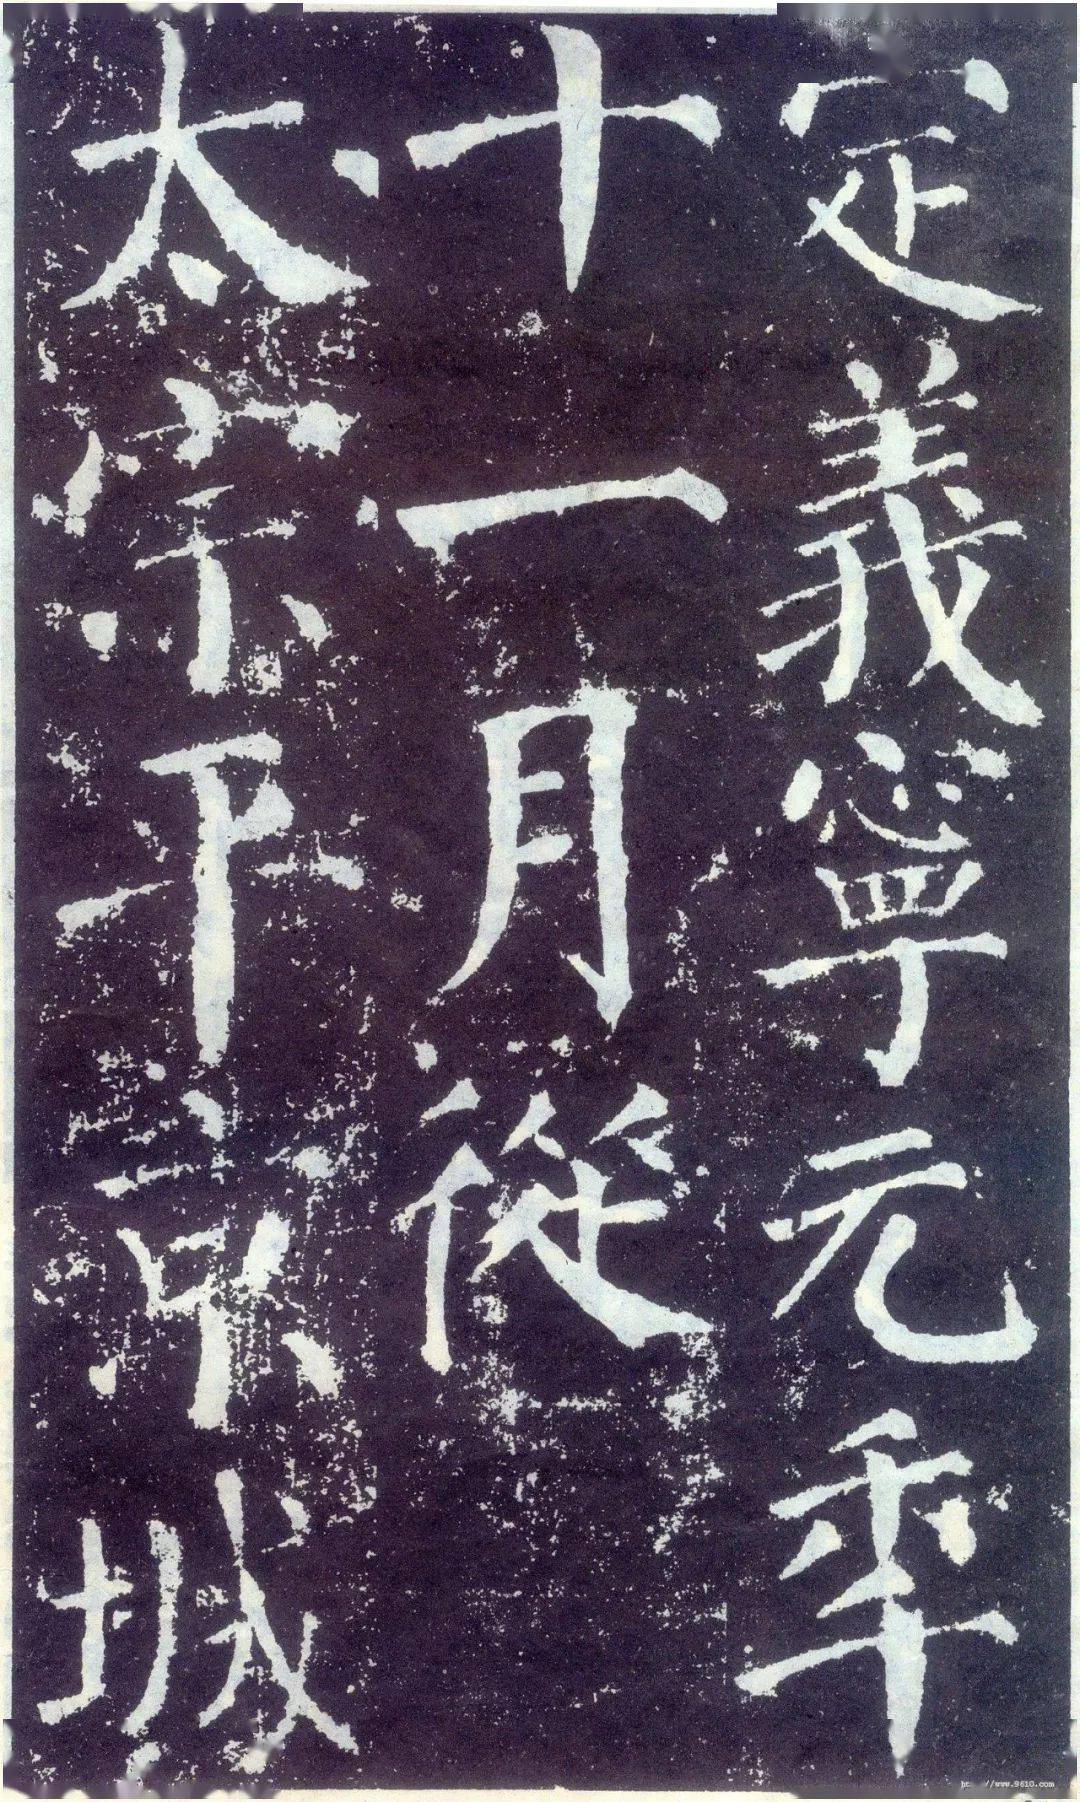 定義寧元年
十一月從
太宗平京城
ht //www.9610.com